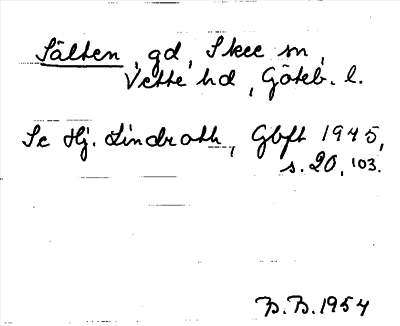 Sälten, gd, Skee sn,
Vette hd, Göteb. l.
Se Hj. Lindroth, Gbft 1945,
s. 20, 103.
B. B. 1954